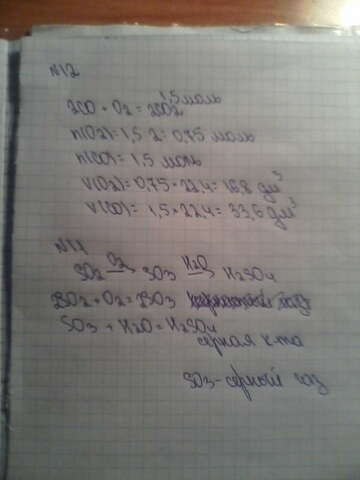 N12
1,5 моль
2CO + O2 = 2CO2
n(O2) = 1,5 : 2 = 0,75 моль
n(CO) = 1,5 моль
V(O2) = 0,75 * 22,4 = 16,8 дм³
V(CO) = 1,5 * 22,4 = 33,6 дм³
N11
SO2 O2→ SO3 H2O→ H2SO4
2SO2 + O2 = 2SO3
SO3 + H2O = H2SO4
серная к-та
SO3 - серный газ